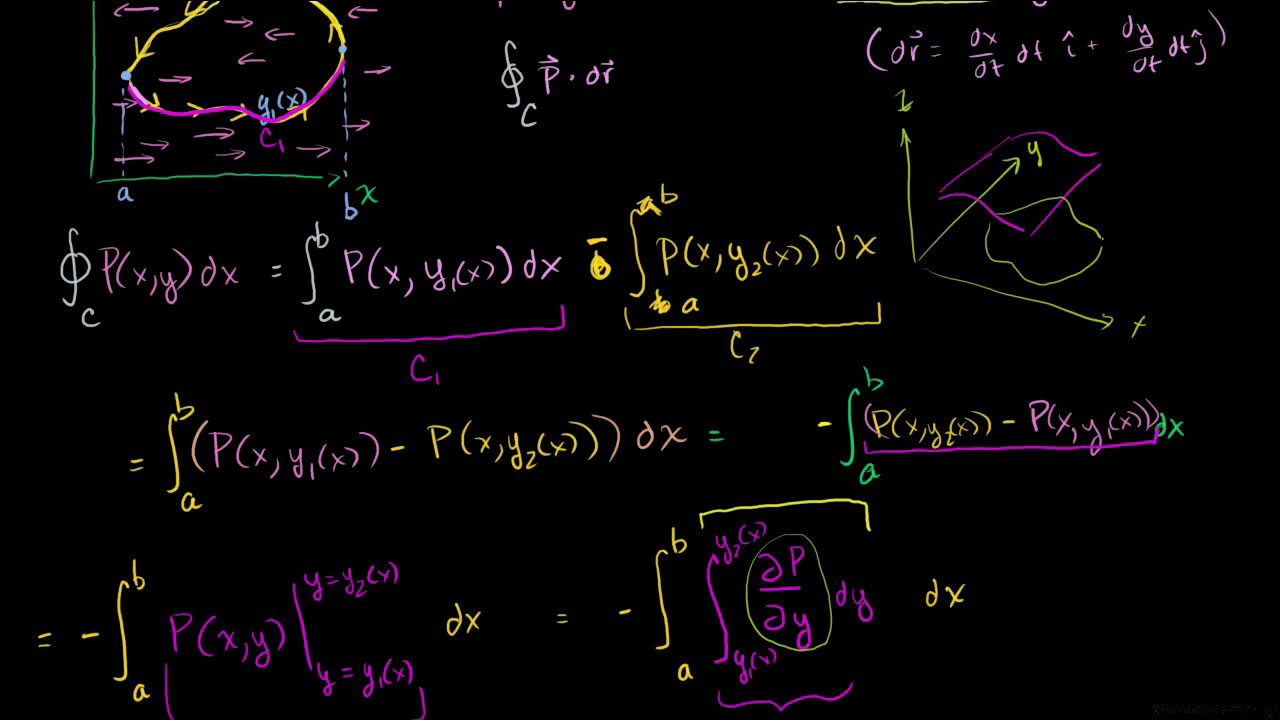 ∮_C P⃗ · dr⃗
(dr⃗ = dx/dt dt î + dy/dt dt ĵ)
y₁(x)
C₁
a b x
z y x
∮_C P(x,y) dx = ∫_a^b P(x, y₁(x)) dx - ∫_a^b P(x, y₂(x)) dx
C₁ C₂
= ∫_a^b (P(x, y₁(x)) - P(x, y₂(x))) dx = - ∫_a^b (P(x, y₂(x)) - P(x, y₁(x))) dx
= - ∫_a^b P(x,y) |_{y = y₁(x)}^{y = y₂(x)} dx = - ∫_a^b ∫_{y₁(x)}^{y₂(x)} ∂P/∂y dy dx